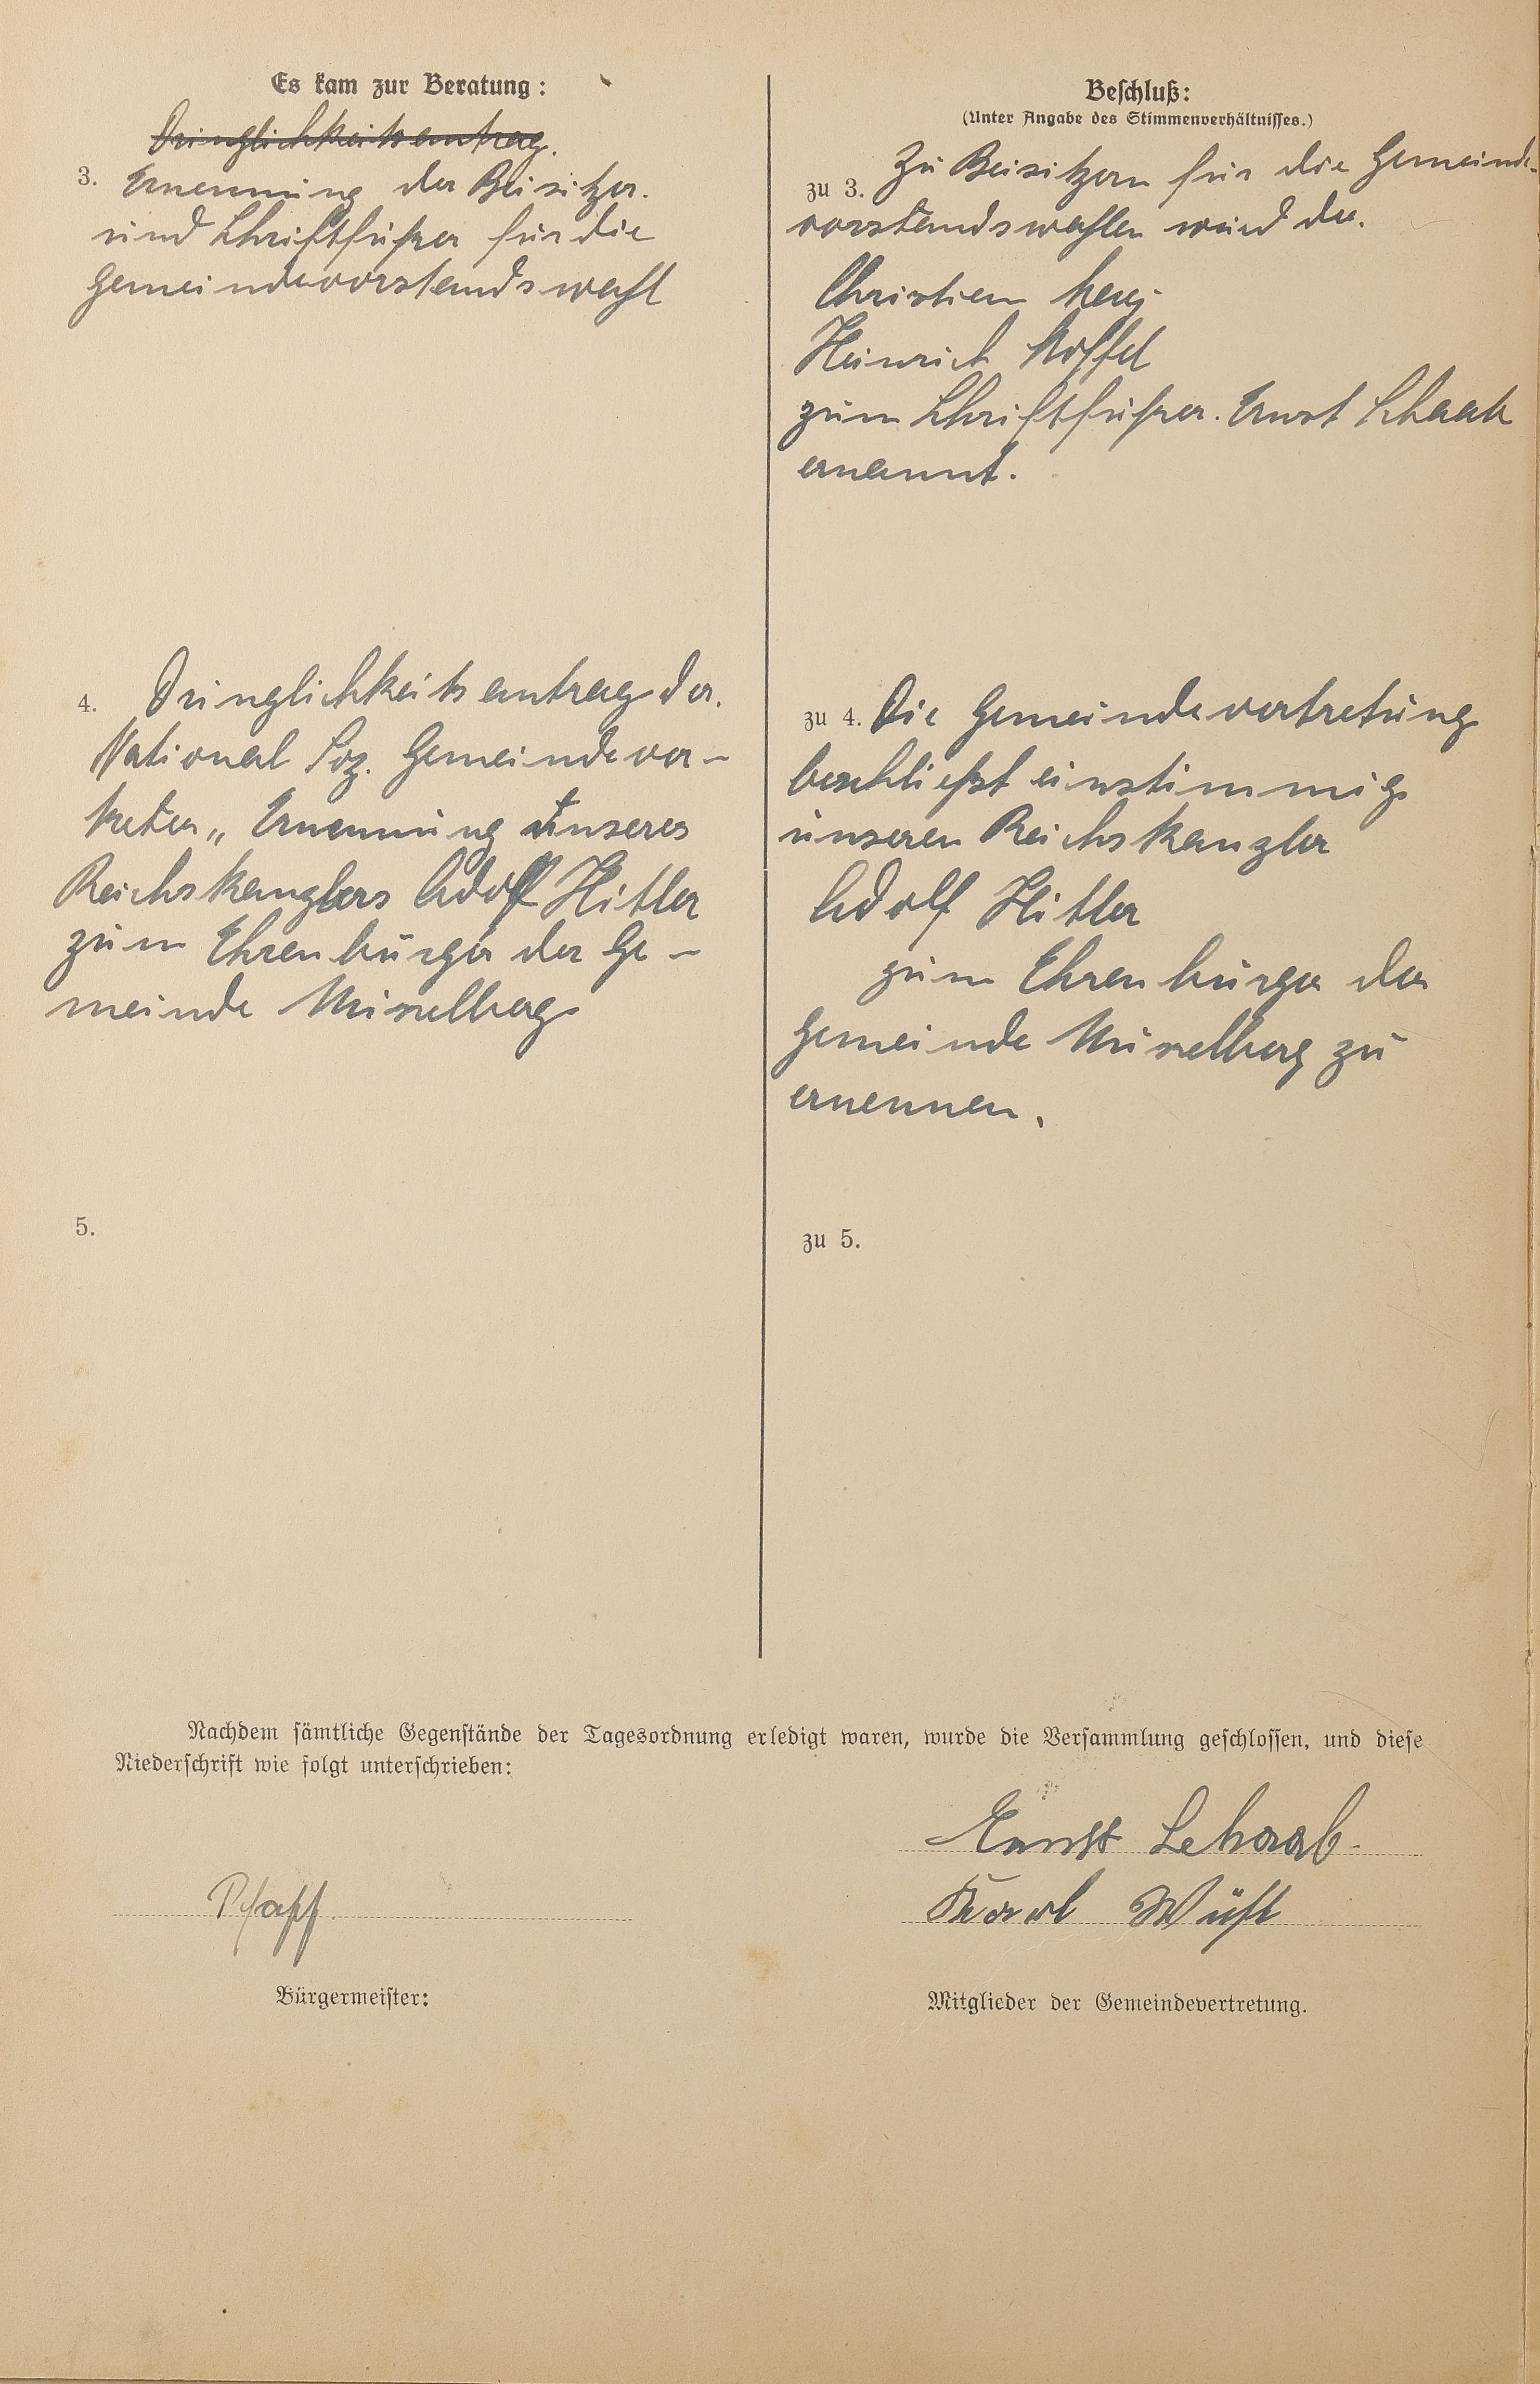 Es kam zur Beratung:
Dringlichkeitsantrag.
3. Ernennung der Beisitzer.
und Schriftführer für die
Gemeindevorstandswahl
4. Dringlichkeitsantrag der.
National Soz. Gemeindever-
treter „ Ernennung unseres
Reichskanzlers Adolf Hitler
zum Ehrenbürger der Ge-
meinde Misselberg
5.
Beschluß:
(Unter Angabe des Stimmenverhältnisses.)
zu 3. Zu Beisitzern für die Gemeinde-
vorstandswahlen wurd der.
Christian
Heinrich
zum Schriftführer. Ernst Schaab
ernannt.
zu 4. Die Gemeindevertretung
beschließt einstimmig
unseren Reichskanzler
Adolf Hitler
zum Ehrenbürger der
Gemeinde Misselberg zu
ernennen.
zu 5.
Nachdem sämtliche Gegenstände der Tagesordnung erledigt waren, wurde die Versammlung geschlossen, und diese
Niederschrift wie folgt unterschrieben:
Pfaff.
Bürgermeister:
Ernst Schaab.
Karl Wüst
Mitglieder der Gemeindevertretung.